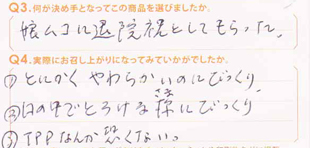 Q3.何が決め手となってこの商品を選びましたか。
娘ムコに退院祝としてもらった。
Q4.実際にお召し上がりになってみていかがでしたか。
①とにかくやわらかいのにびっくり
②口の中でとろける様にびっくり
③TPPなんか恐くないっ